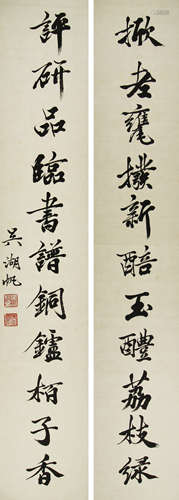 掀老甕撥新醅玉醴荔枝綠
評研品臨書譜銅鑪栢子香
吳湖帆